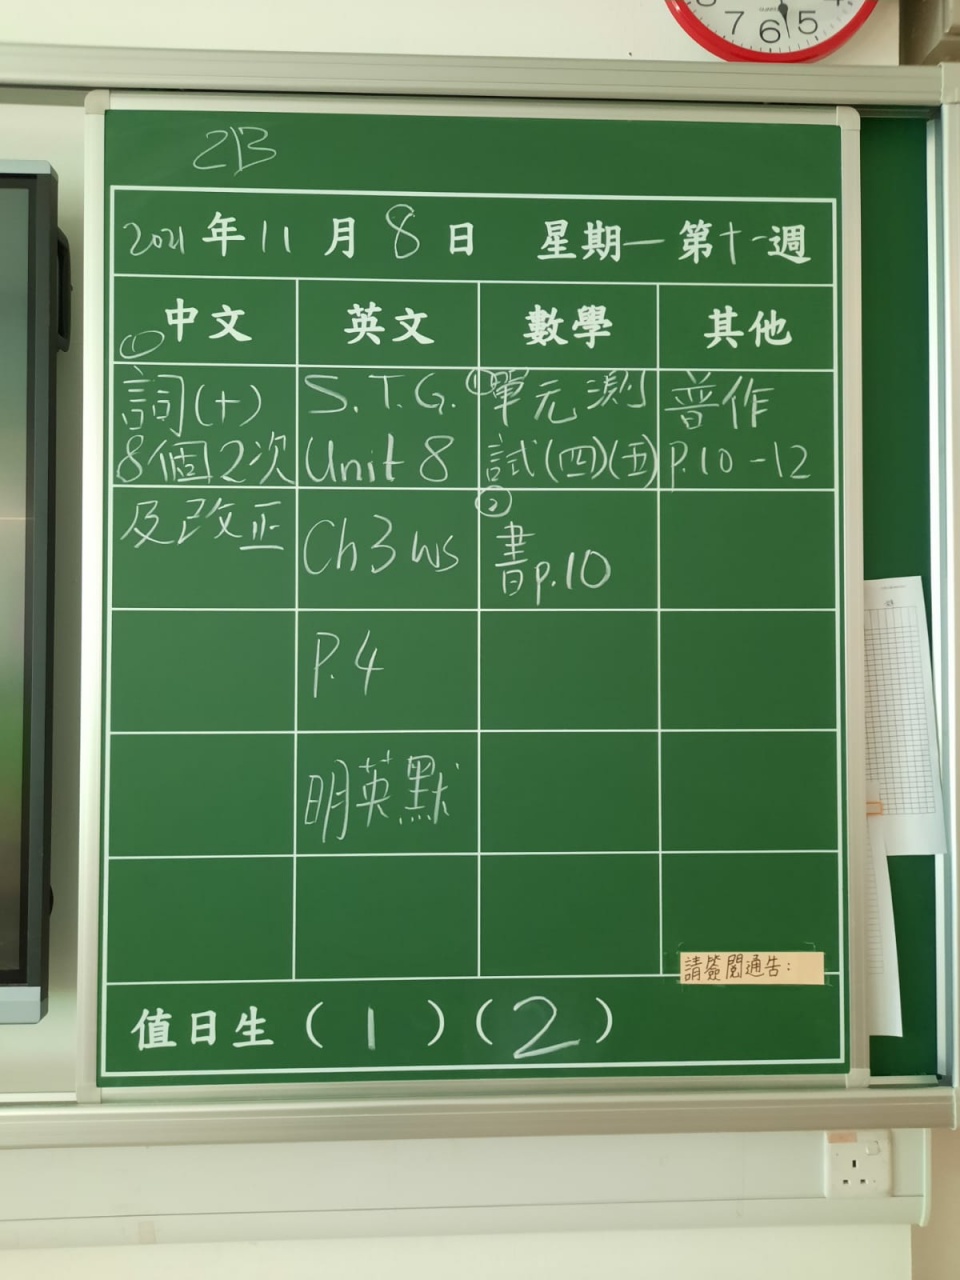 7 6 5
2B
2021年11月8日 星期一 第十一週
中文 英文 數學 其他
①
詞(十)
8個2次
及改正
S.T.G.
Unit 8
Ch3 ws
P.4
明英默
①單元測
試(四)(五)
②
書p.10
普作
P.10-12
請簽閱通告：
值日生（1）（2）